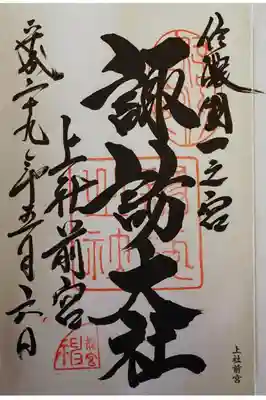 信濃國一之宮
諏訪大社
上社前宮
平成二十九年五月六日
上社前宮